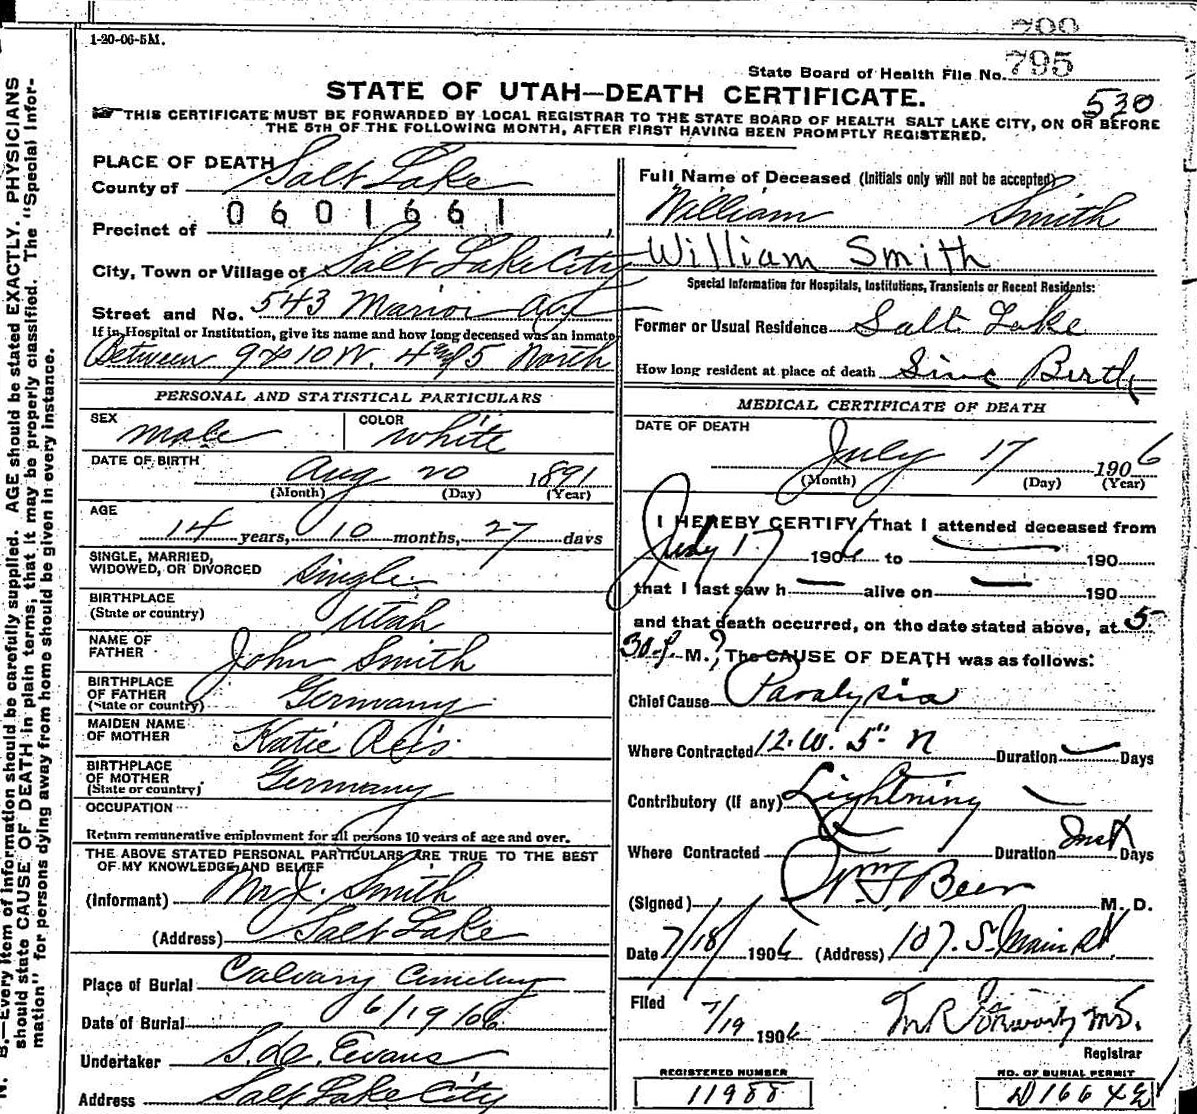 1-20-06-5M.
State Board of Health File No. 795
STATE OF UTAH—DEATH CERTIFICATE.
530
THIS CERTIFICATE MUST BE FORWARDED BY LOCAL REGISTRAR TO THE STATE BOARD OF HEALTH SALT LAKE CITY, ON OR BEFORE
THE 5TH OF THE FOLLOWING MONTH, AFTER FIRST HAVING BEEN PROMPTLY REGISTERED.
N. B.—Every item of information should be carefully supplied. AGE should be stated EXACTLY. PHYSICIANS
should state CAUSE OF DEATH in plain terms, that it may be properly classified. The "Special Infor-
mation" for persons dying away from home should be given in every instance.
PLACE OF DEATH
County of Salt Lake
0601661
Precinct of
City, Town or Village of Salt Lake City
Street and No. 543 Ave
If in Hospital or Institution, give its name and how long deceased was an inmate
Between 9 & 10 W. 4 and 5 North
PERSONAL AND STATISTICAL PARTICULARS
SEX male COLOR white
DATE OF BIRTH Aug 20 1891
(Month) (Day) (Year)
AGE
14 years, 10 months, 27 days
SINGLE, MARRIED,
WIDOWED, OR DIVORCED Single
BIRTHPLACE
(State or country) Utah
NAME OF
FATHER John Smith
BIRTHPLACE
OF FATHER
(State or country) Germany
MAIDEN NAME
OF MOTHER Katie Reis
BIRTHPLACE
OF MOTHER
(State or country) Germany
OCCUPATION
Return remunerative employment for all persons 10 years of age and over.
THE ABOVE STATED PERSONAL PARTICULARS ARE TRUE TO THE BEST
OF MY KNOWLEDGE AND BELIEF
(Informant) Mr J. Smith
(Address) Salt Lake
Place of Burial Calvary Cemetery
Date of Burial 6/19/06
Undertaker Evans
Address Salt Lake City
Full Name of Deceased (Initials only will not be accepted)
William Smith
William Smith
Special Information for Hospitals, Institutions, Transients or Recent Residents:
Former or Usual Residence Salt Lake
How long resident at place of death Sinc Birth
MEDICAL CERTIFICATE OF DEATH
DATE OF DEATH
July 17 1906
(Month) (Day) (Year)
I HEREBY CERTIFY, That I attended deceased from
July 17 1906 to 190
that I last saw h alive on 190
and that death occurred, on the date stated above, at 5
30 p. M., The CAUSE OF DEATH was as follows:
Chief Cause Paralysis
Where Contracted 12. W. 5" N Duration Days
Contributory (if any) Lightning
Where Contracted Duration Inst Days
(Signed) Wm F Beer M. D.
Date 7/18/ 1906 (Address) 107. S. Main St
Filed 7/19 1906
Registrar
REGISTERED NUMBER
11988
NO. OF BURIAL PERMIT